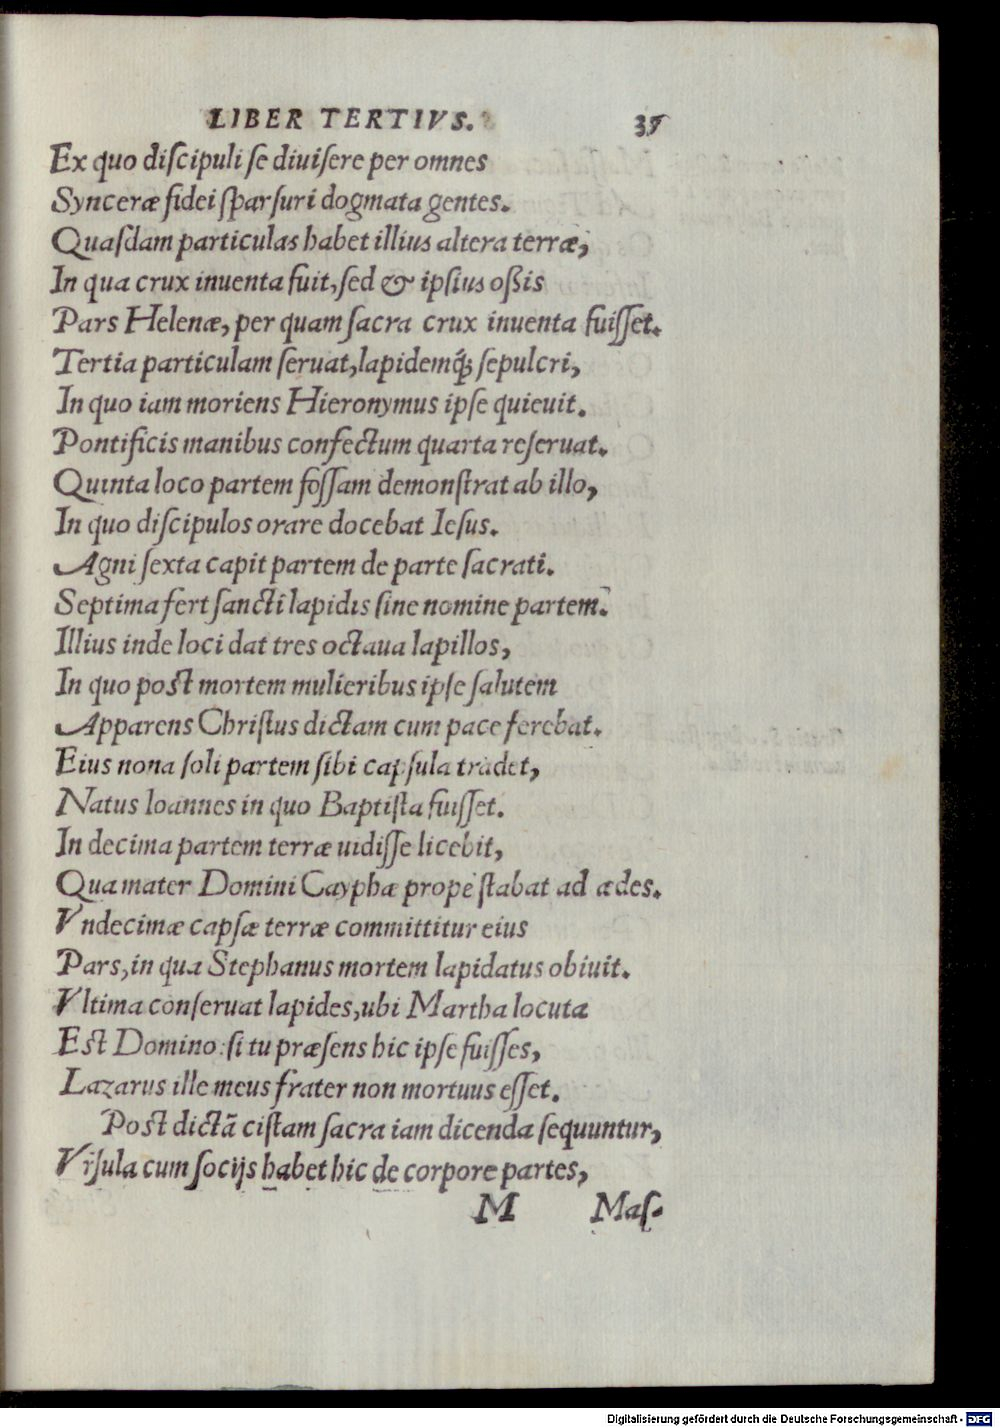 LIBER TERTIVS. 35
Ex quo diſcipuli ſe diuiſere per omnes
Synceræ fidei ſparſuri dogmata gentes.
Quaſdam particulas habet illius altera terræ,
In qua crux inuenta fuit, ſed & ipſius oßis
Pars Helenæ, per quam ſacra crux inuenta fuiſſet.
Tertia particulam ſeruat, lapidemq́; ſepulcri,
In quo iam moriens Hieronymus ipſe quieuit.
Pontificis manibus confectum quarta reſeruat.
Quinta loco partem foſſam demonſtrat ab illo,
In quo diſcipulos orare docebat Ieſus.
Agni ſexta capit partem de parte ſacrati.
Septima fert ſancti lapidis ſine nomine partem.
Illius inde loci dat tres octaua lapillos,
In quo poſt mortem mulieribus ipſe ſalutem
Apparens Chriſtus dictam cum pace ferebat.
Eius nona ſoli partem ſibi capſula tradet,
Natus Ioannes in quo Baptiſta fuiſſet.
In decima partem terræ uidiſſe licebit,
Qua mater Domini Cayphæ prope ſtabat ad ædes.
Vndecimæ capſæ terræ committitur eius
Pars, in qua Stephanus mortem lapidatus obiuit.
Vltima conſeruat lapides, ubi Martha locuta
Eſt Domino: ſi tu præſens hic ipſe fuiſſes,
Lazarus ille meus frater non mortuus eſſet.
Poſt dictā ciſtam ſacra iam dicenda ſequuntur,
Vrſula cum ſocijs habet hic de corpore partes,
M Maſ-
Digitalisierung gefördert durch die Deutsche Forschungsgemeinschaft - DFG